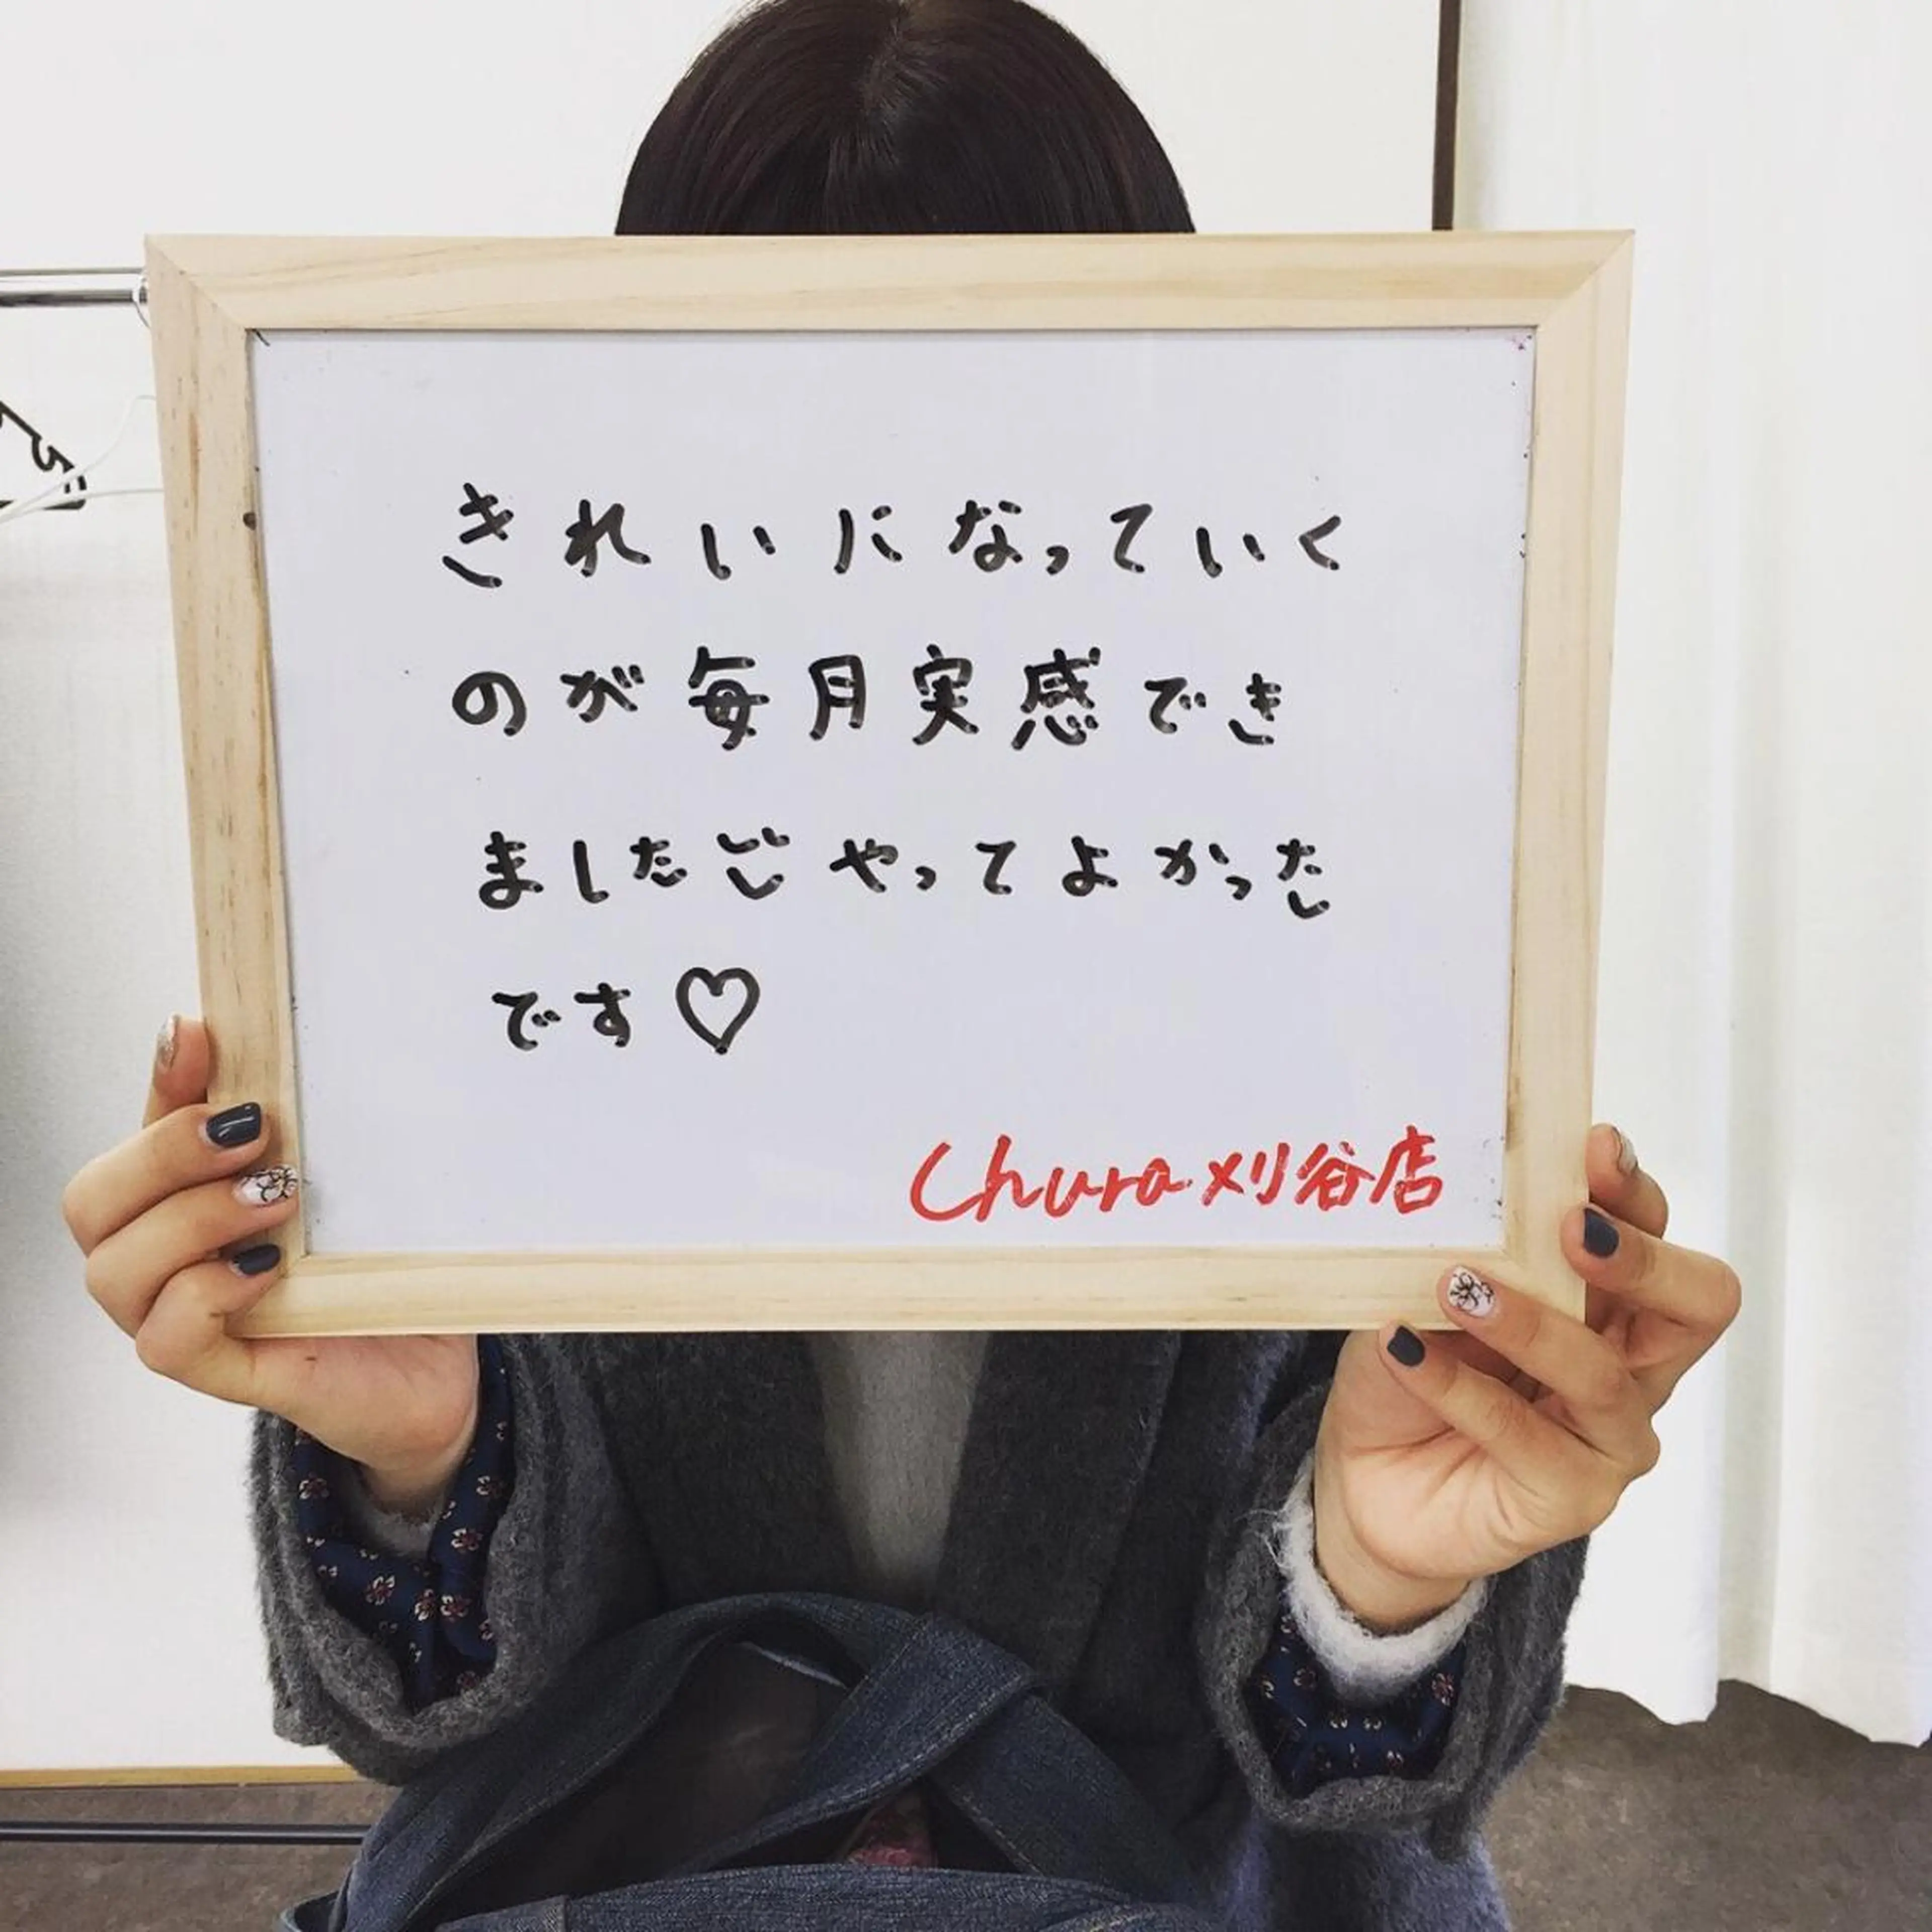 きれいになっていく
のが毎月実感でき
ました やってよかった
です♡
Chura 刈谷店